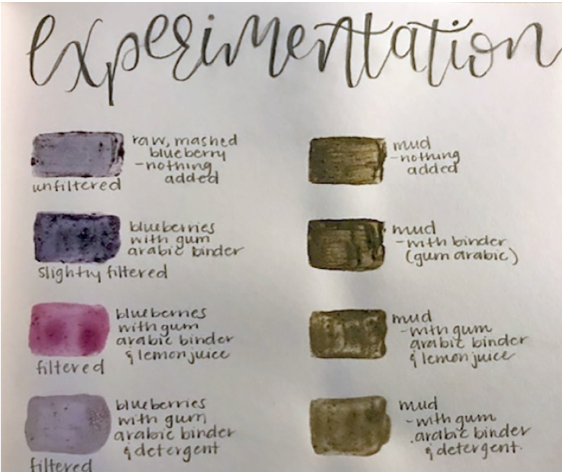 experimentation
raw, mashed
blueberry
-nothing
added
unfiltered
blueberries
with gum
arabic binder
slightly filtered
blueberries
with gum
arabic binder
& lemon juice
filtered
blueberries
with gum
arabic binder
& detergent
filtered
mud
-nothing
added
mud
-with binder
(gum arabic)
mud
-with gum
arabic binder
& lemon juice
mud
-with gum
arabic binder
& detergent.